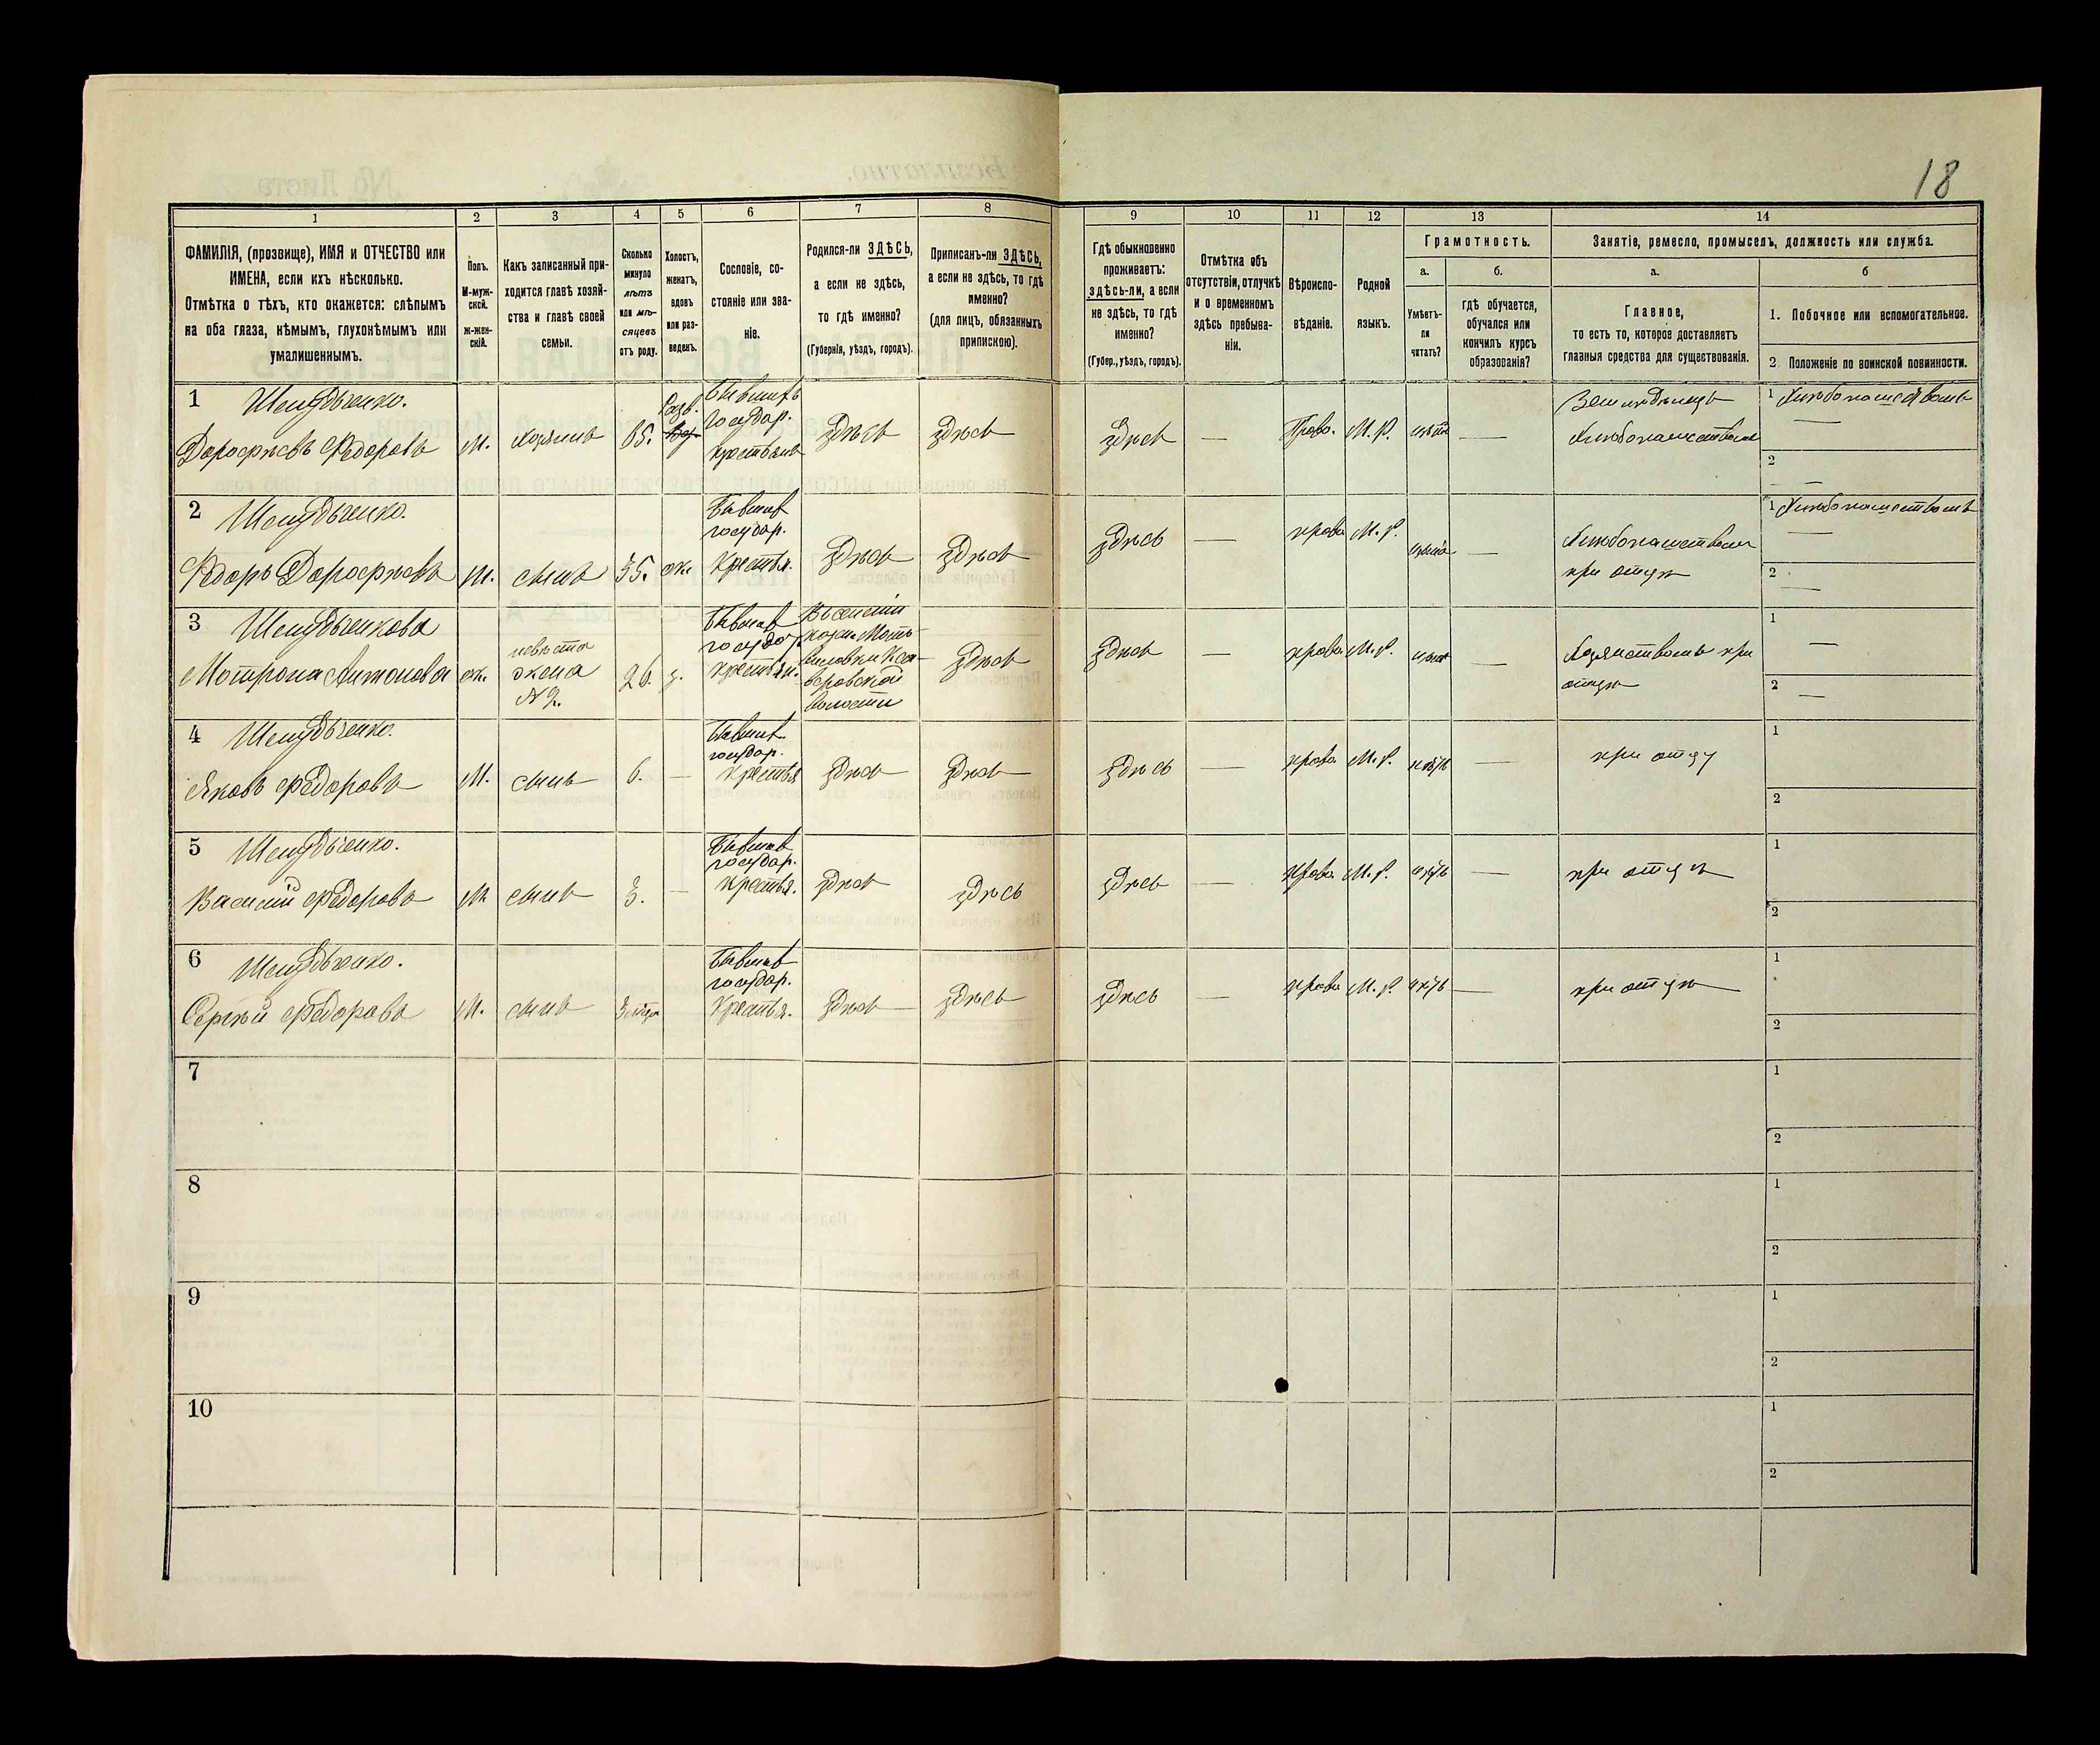 18
1
2
3
4
5
6
7
8
9
10
11
12
13
14
ФАМИЛІЯ, (прозвище), ИМЯ и ОТЧЕСТВО или
ИМЕНА, если ихъ нѣсколько.
Отмѣтка о тѣхъ, кто окажется: слѣпымъ
на оба глаза, нѣмымъ, глухонѣмымъ или
умалишеннымъ.
Полъ.
М-муж-
ской.
ж-жен-
скій.
Какъ записанный при-
ходится главѣ хозяй-
ства и главѣ своей
семьи.
Сколько
минуло
лѣтъ
или мѣ-
сяцевъ
отъ роду.
Холостъ,
женатъ,
вдовъ
или раз-
веденъ.
Сословіе, со-
стояніе или зва-
ніе.
Родился-ли ЗДѢСЬ,
а если не здѣсь,
то гдѣ именно?
(Губернія, уѣздъ, городъ).
Приписанъ-ли ЗДѢСЬ,
а если не здѣсь, то гдѣ
именно?
(для лицъ, обязанныхъ
припискою).
Гдѣ обыкновенно
проживаетъ:
здѣсь-ли, а если
не здѣсь, то гдѣ
именно?
(Губер., уѣздъ, городъ).
Отмѣтка объ
отсутствіи, отлучкѣ
и о временномъ
здѣсь пребыва-
ніи.
Вѣроиспо-
вѣданіе.
Родной
языкъ.
Грамотность.
а.
б.
Умѣетъ-
ли
читать?
гдѣ обучается,
обучался или
кончилъ курсъ
образованія?
Занятіе, ремесло, промыселъ, должность или служба.
а.
б
Главное,
то есть то, которое доставляетъ
главныя средства для существованія.
1. Побочное или вспомогательное.
2. Положеніе по воинской повинности.
1
Дорофѣевъ Федоровъ
м.
хозяинъ
65.
Бывшихъ
Государ.
крестьянъ
здѣсь
здѣсь
здѣсь
—
Право.
М. Р.
нѣтъ
—
Земледѣлецъ
Хлѣбопашествомъ
1 Хлѣбопашествомъ
—
2
—
2
Федоръ Дорофѣевъ
м.
сынъ
35.
ж.
Бывшихъ
государ.
Крестья.
здѣсь
здѣсь
здѣсь
—
право
М. Р.
—
Хлѣбопашествомъ
при отцѣ
1 Хлѣбопашествомъ
—
2
—
3
Мотрона Антонова
ж.
невѣстка
жена
№ 2.
26.
з.
государ
крестьян.
волости
здѣсь
здѣсь
—
право
М. Р.
—
Хозяйствомъ при
отцѣ
1
—
2
—
4
Яковъ Федоровъ
М.
сынъ
6.
—
государ.
крестья
здѣсь
здѣсь
здѣсь
—
право
М. Р.
—
при отцу
1
2
5
Василій Федоровъ
М
сынъ
3.
—
государ.
крестья.
здѣсь
здѣсь
здѣсь
—
Право
М. Р.
—
при отцѣ
1
2
6
Сергѣй Федоровъ
М.
сынъ
государ.
Крестья.
здѣсь
здѣсь
здѣсь
—
право
М. Р.
—
при отцѣ
1
2
7
1
2
8
1
2
9
1
2
10
1
2